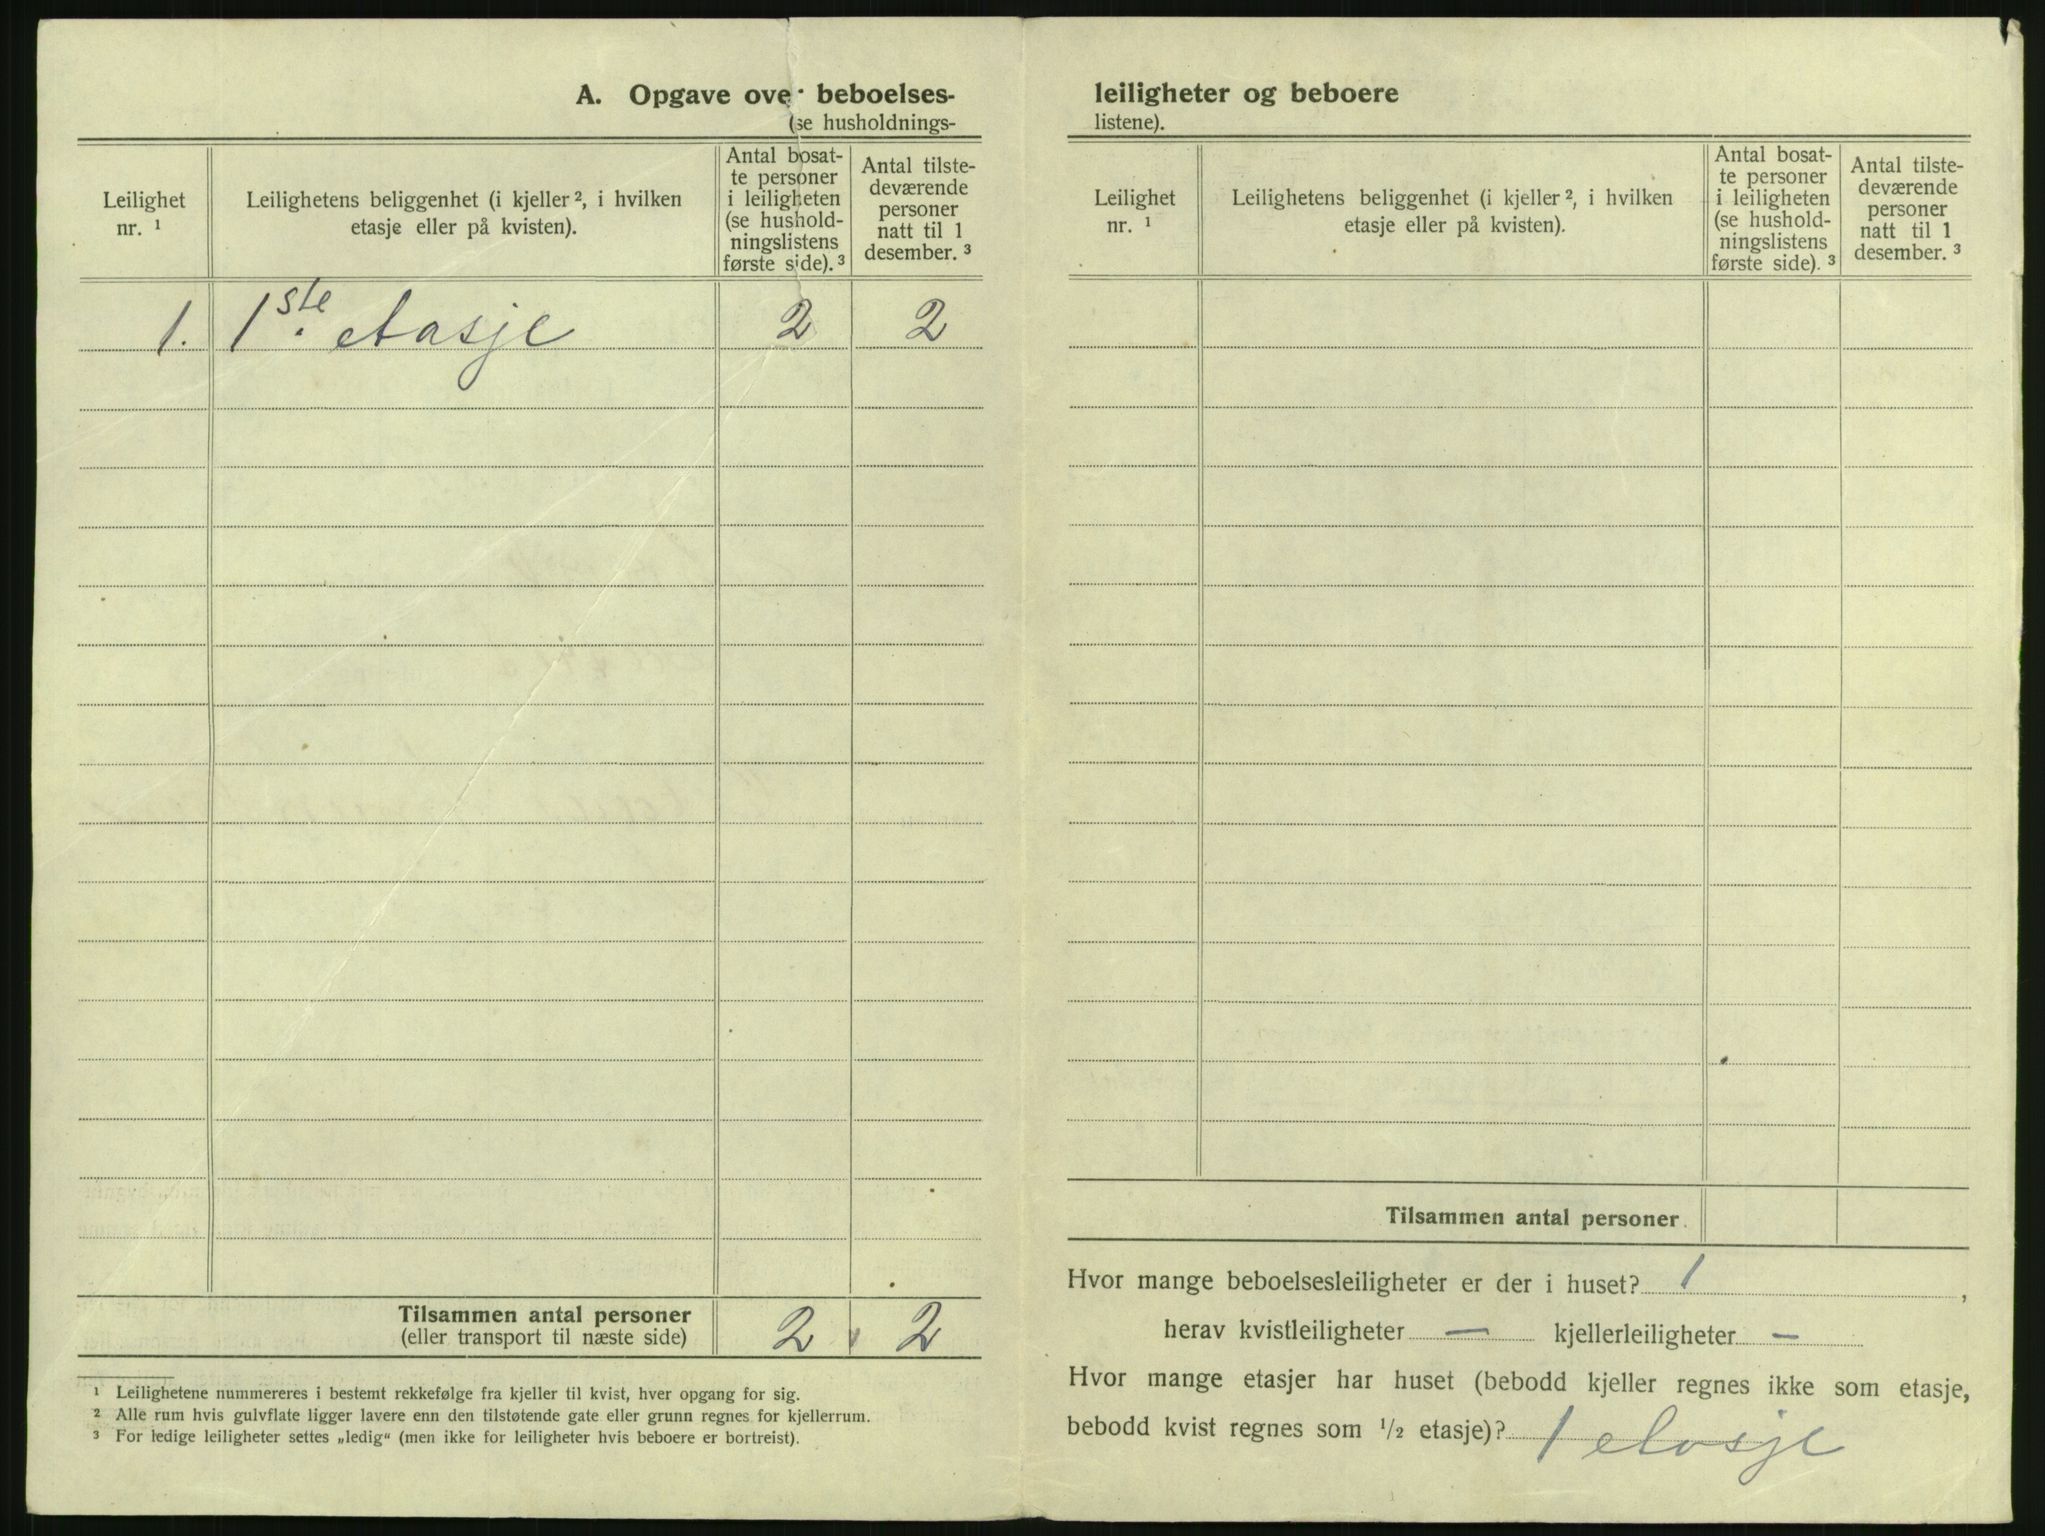 A. Opgave over beboelses-
(se husholdnings-
Leilighet
nr. ¹
Leilighetens beliggenhet (i kjeller ², i hvilken
etasje eller på kvisten).
Antal bosat-
te personer
i leiligheten
(se hushold-
ningslistens
første side). ³
Antal tilste-
deværende
personer
natt til 1
desember. ³
1. 1ste. etasje 2 2
Tilsammen antal personer
(eller transport til næste side)
2 2
¹ Leilighetene nummereres i bestemt rekkefølge fra kjeller til kvist, hver opgang for sig.
² Alle rum hvis gulvflate ligger lavere enn den tilstøtende gate eller grunn regnes for kjellerrum.
³ For ledige leiligheter settes „ledig“ (men ikke for leiligheter hvis beboere er bortreist).
leiligheter og beboere
listene).
Leilighet
nr. ¹
Leilighetens beliggenhet (i kjeller ², i hvilken
etasje eller på kvisten).
Antal bosat-
te personer
i leiligheten
(se hushold-
ningslistens
første side). ³
Antal tilste-
deværende
personer
natt til 1
desember. ³
Tilsammen antal personer
Hvor mange beboelsesleiligheter er der i huset? 1,
herav kvistleiligheter — kjellerleiligheter —
Hvor mange etasjer har huset (bebodd kjeller regnes ikke som etasje,
bebodd kvist regnes som ½ etasje)? 1 etasje